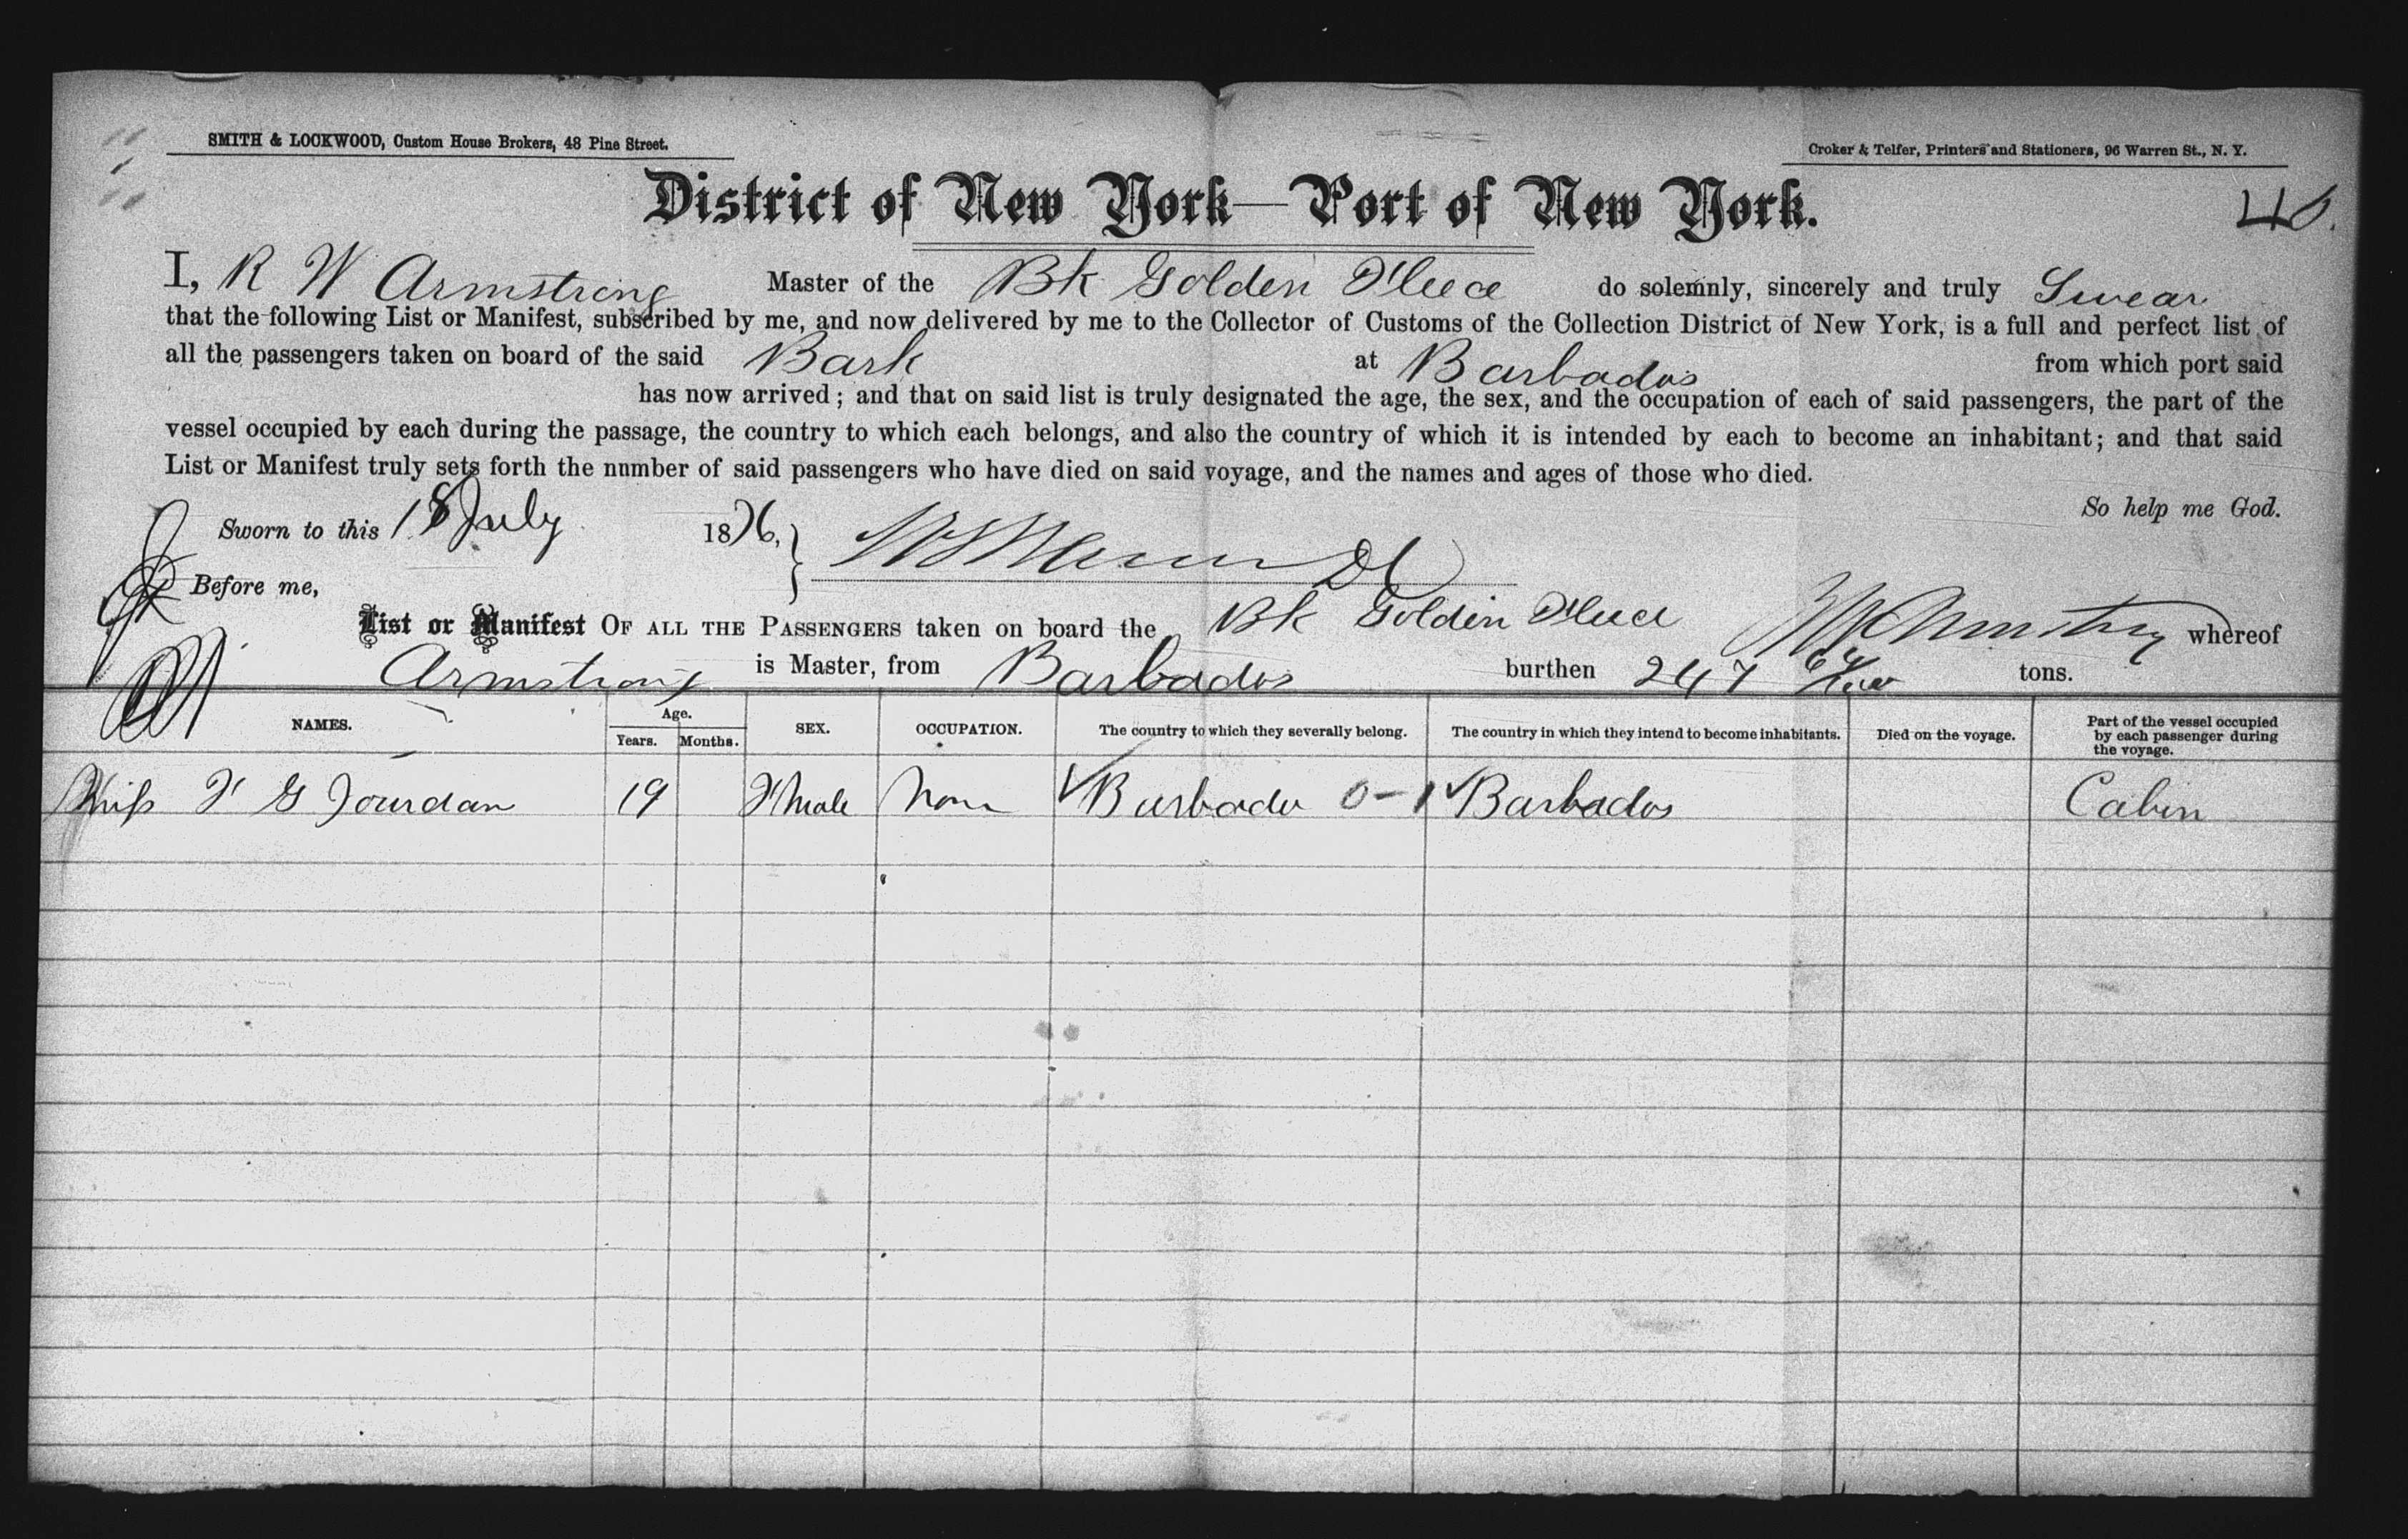 SMITH & LOCKWOOD, Custom House Brokers, 48 Pine Street.
Croker & Telfer, Printers and Stationers, 96 Warren St., N. Y.
District of New York—Port of New York.
I, R W Armstrong Master of the Bk Golden Fleece do solemnly, sincerely and truly Swear
that the following List or Manifest, subscribed by me, and now delivered by me to the Collector of Customs of the Collection District of New York, is a full and perfect list of
all the passengers taken on board of the said Bark at Barbados from which port said
has now arrived; and that on said list is truly designated the age, the sex, and the occupation of each of said passengers, the part of the
vessel occupied by each during the passage, the country to which each belongs, and also the country of which it is intended by each to become an inhabitant; and that said
List or Manifest truly sets forth the number of said passengers who have died on said voyage, and the names and ages of those who died.
So help me God.
Sworn to this 18 July 1876,
Before me,
List or Manifest OF ALL THE PASSENGERS taken on board the Bk Golden Fleece whereof
Armstrong is Master, from Barbados burthen 247 tons.
NAMES. Age. Years. Months. SEX. OCCUPATION. The country to which they severally belong. The country in which they intend to become inhabitants. Died on the voyage. Part of the vessel occupied by each passenger during the voyage.
Miss F G Jourdan 19 Fmale None Barbados 0-1 Barbados Cabin